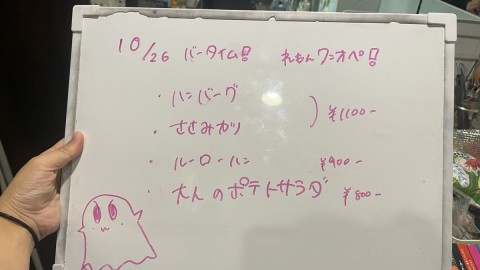 10/26 バータイム!! れもんワンオペ!!
・ハンバーグ
・ささみカツ
) ¥1100-
・ルーローハン ¥900-
・大人のポテトサラダ ¥800-